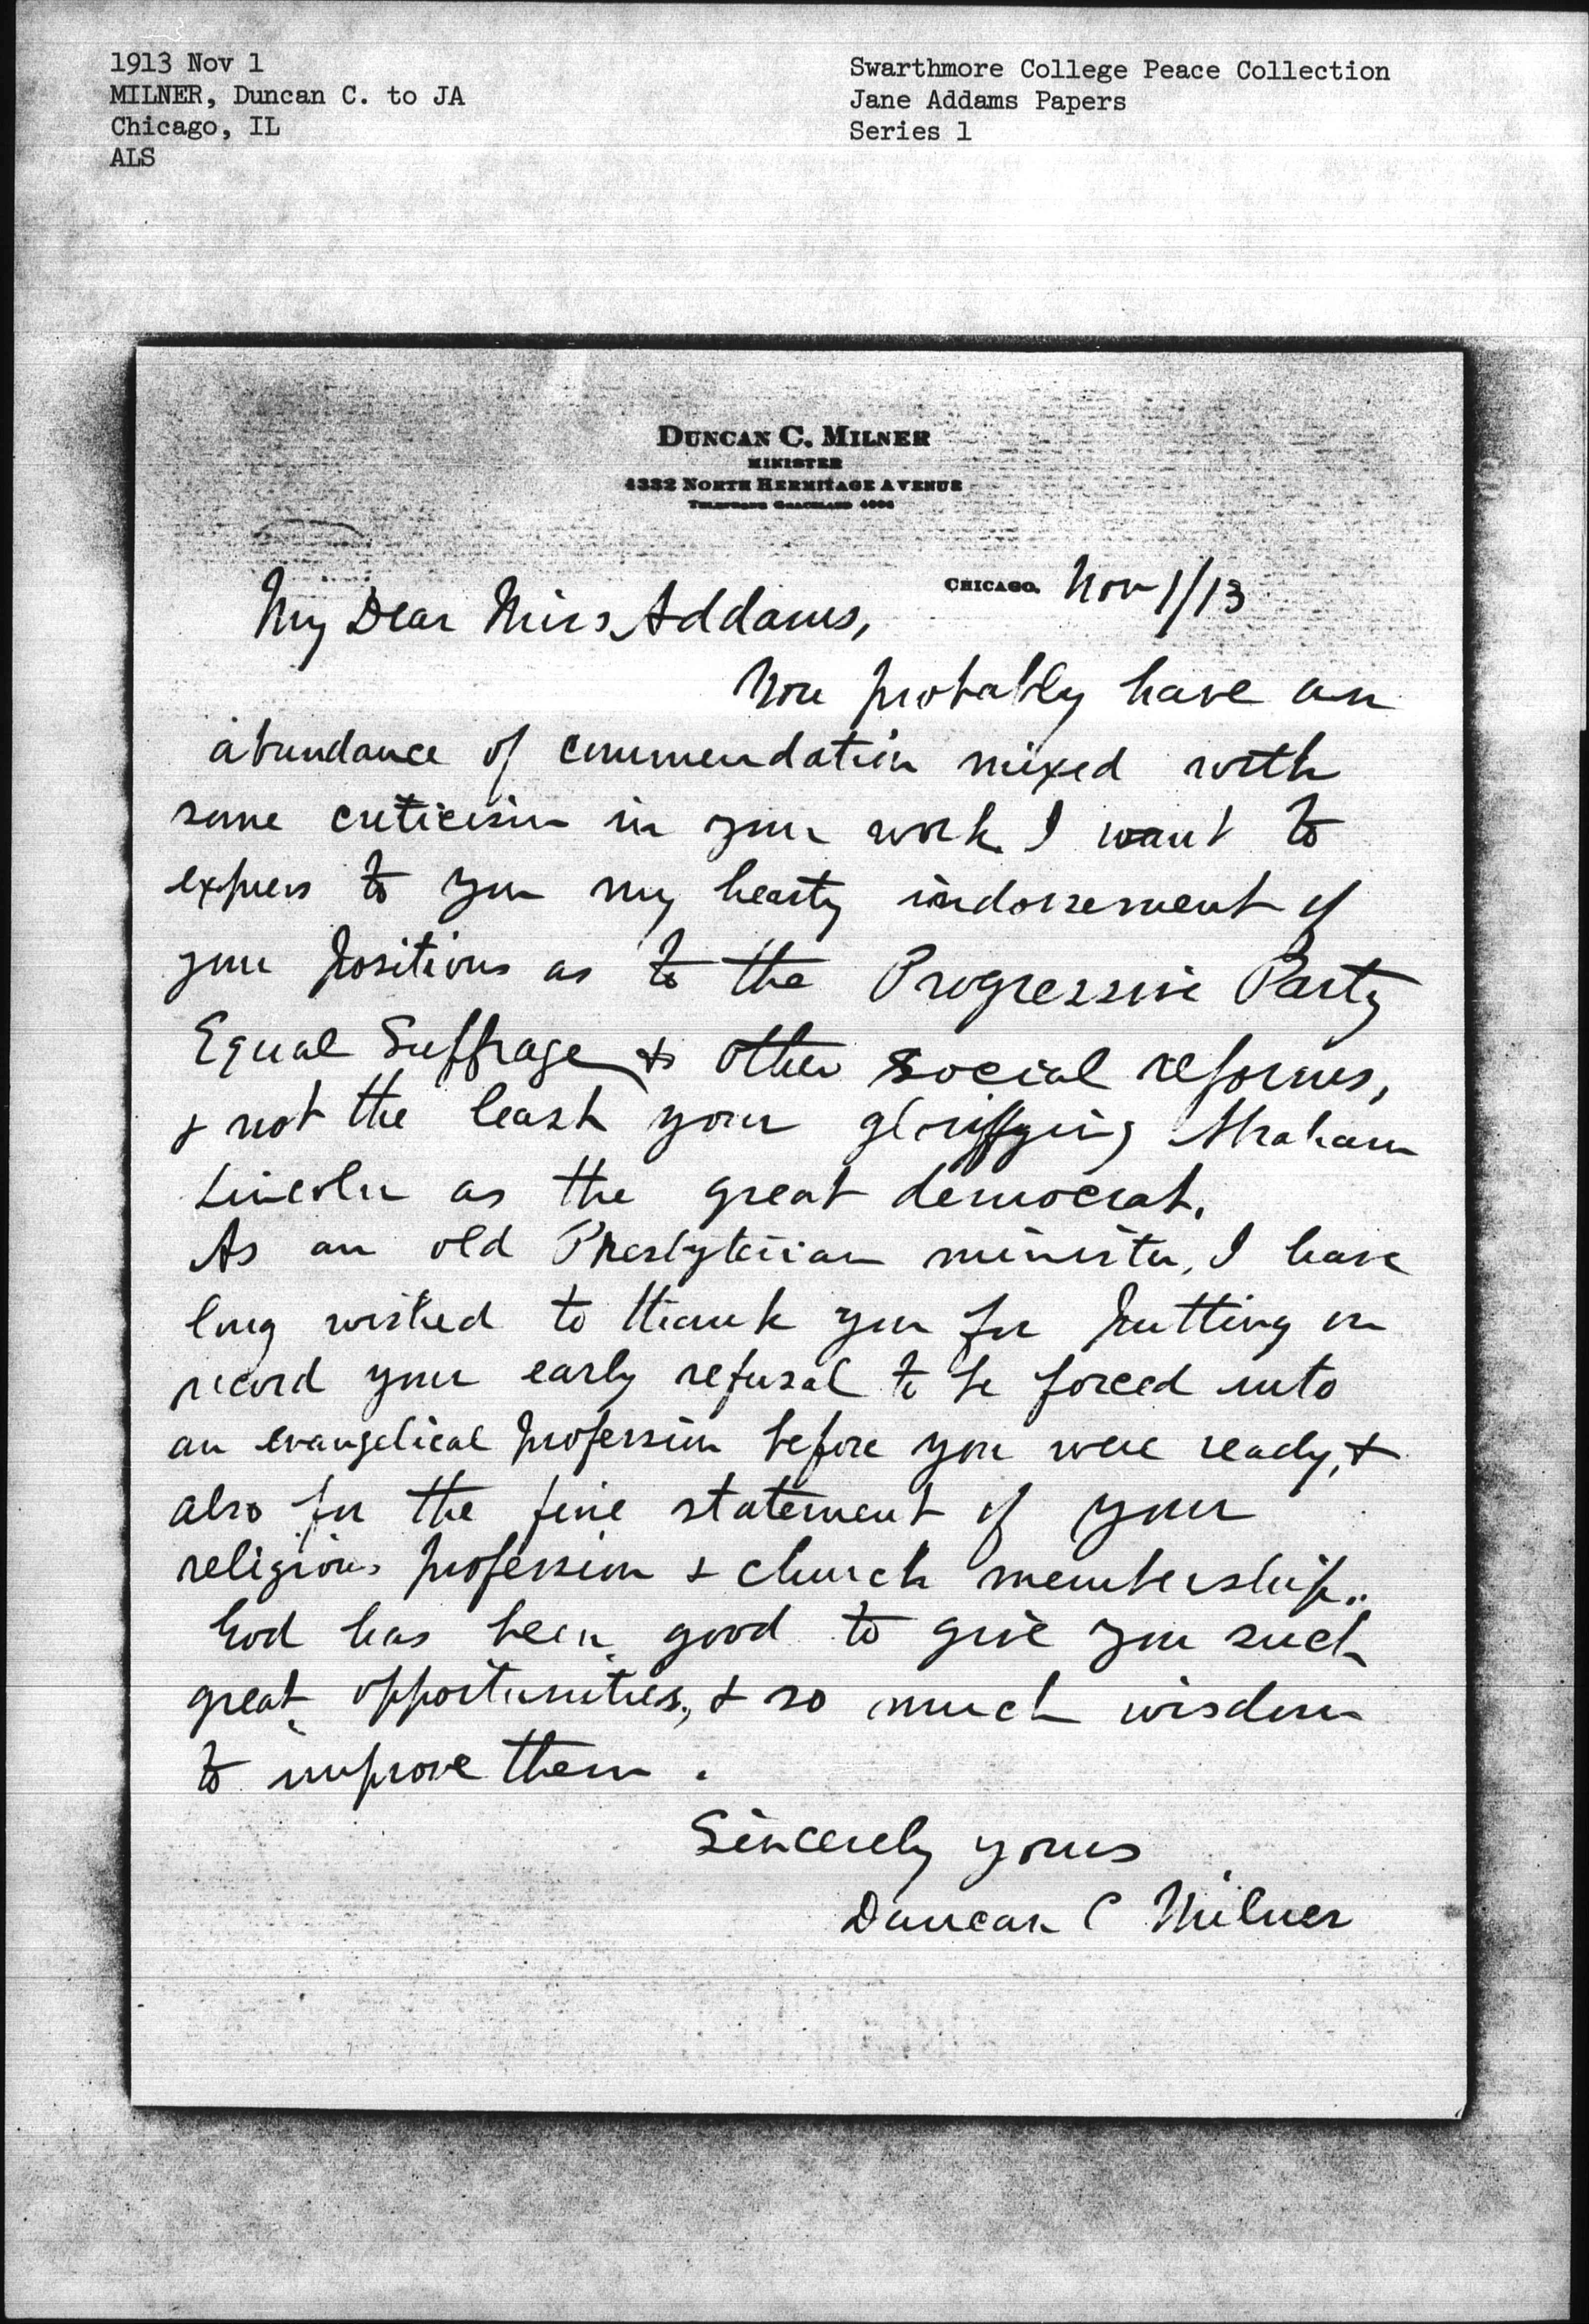 1913 Nov 1
MILNER, Duncan C. to JA
Chicago, IL
ALS
Swarthmore College Peace Collection
Jane Addams Papers
Series 1
DUNCAN C. MILNER
MINISTER
4332 NORTH HERMITAGE AVENUE
TELEPHONE GRACELAND
CHICAGO. Nov 1/13
My Dear Miss Addams,
You probably have an
abundance of commendation mixed with
some criticism in your work. I want to
express to you my hearty indorsement of
your positions as to the Progressive Party
Equal Suffrage & other social reforms,
& not the least your glorifying Abraham
Lincoln as the great democrat.
As an old Presbyterian minister, I have
long wished to thank you for putting on
record your early refusal to be forced into
an evangelical profession before you were ready, &
also for the fine statement of your
religious profession & church membership..
God has been good to give you such
great opportunities, & so much wisdom
to improve them.
Sincerely yours
Duncan C Milner